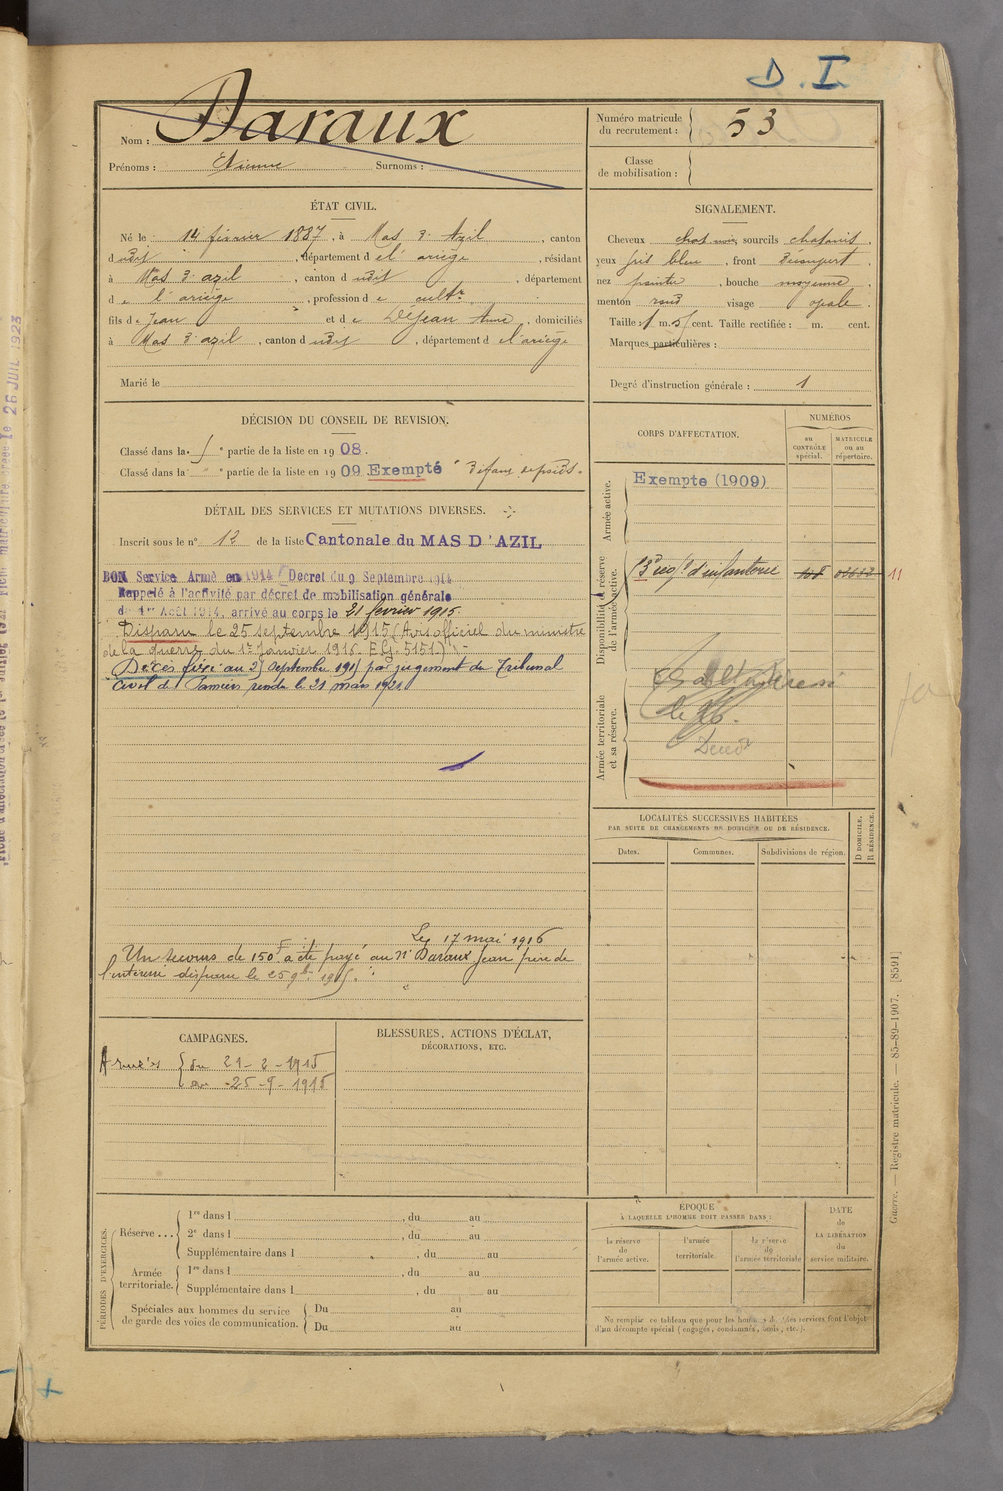 D. I.
Nom : Daraux
Prénoms : Etienne Surnoms :
Numéro matricule du recrutement : 53
Classe de mobilisation :
ÉTAT CIVIL.
Né le 14 février 1887, à Mas d'Azil, canton
dudit, département de l'ariège, résidant
à Mas d'azil, canton dudit, département
de l'ariège, profession de cultr
fils de Jean et de Dejean Anne, domiciliés
à Mas d'azil, canton dudit, département de l'ariège
Marié le
SIGNALEMENT.
Cheveux chat noir, sourcils chatains,
yeux gris bleu, front découvert,
nez pointu, bouche moyenne,
menton rond visage ovale.
Taille : 1 m. 5 cent. Taille rectifiée : m. cent.
Marques particulières :
Degré d'instruction générale : 1
DÉCISION DU CONSEIL DE REVISION.
Classé dans la partie de la liste en 1908.
Classé dans la " partie de la liste en 1909 Exempté
DÉTAIL DES SERVICES ET MUTATIONS DIVERSES.
Inscrit sous le n° 12 de la liste Cantonale du MAS D'AZIL
BON Service Armé en 1914 (Decret du 9 Septembre 1914
Rappelé à l'activité par décret de mobilisation générale
du 1er Août 1914, arrivé au corps le 21 février 1915.
Disparu le 25 septembre 1915 (Avis officiel du ministre
de la guerre du 1er Janvier 1916. E.G. 5151)
Décès fixé au 25 septembre 1915 par jugement du Tribunal
civil de Pamiers rendu le 21 mars 1921.
Le 17 mai 1916
Un secours de 150f a été payé au Mr Daraux Jean père de
l'interessé disparu le 25 9bre 1915.
CORPS D'AFFECTATION.
NUMÉROS
au CONTRÔLE spécial.
MATRICULE ou au répertoire.
Armée active.
Exempte (1909)
Disponibilité et réserve de l'armée active.
d'infanterie
11
Armée territoriale et sa réserve.
LOCALITÉS SUCCESSIVES HABITÉES
PAR SUITE DE CHANGEMENTS DE DOMICILE OU DE RÉSIDENCE.
Dates. Communes. Subdivisions de région. D DOMICILE. R RÉSIDENCE.
CAMPAGNES.
du 21-2-1915
au 25-9-1915
BLESSURES, ACTIONS D'ÉCLAT,
DÉCORATIONS, ETC.
PÉRIODES D'EXERCICES.
Réserve ...
1re dans l , du au
2e dans l , du au
Supplémentaire dans l , du au
Armée territoriale.
1re dans l , du au
Supplémentaire dans l , du au
Spéciales aux hommes du service de garde des voies de communication.
Du au
Du au
ÉPOQUE
À LAQUELLE L'HOMME DOIT PASSER DANS :
la réserve de l'armée active.
l'armée territoriale.
la réserve de l'armée territoriale
DATE de LA LIBÉRATION du service militaire.
Ne remplir ce tableau que pour les hommes dont les services font l'objet
d'un décompte spécial (engagés, condamnés, omis, etc.).
Guerre. — Registre matricule. — 85-89-1907. [8591]
26 JUIL 1923